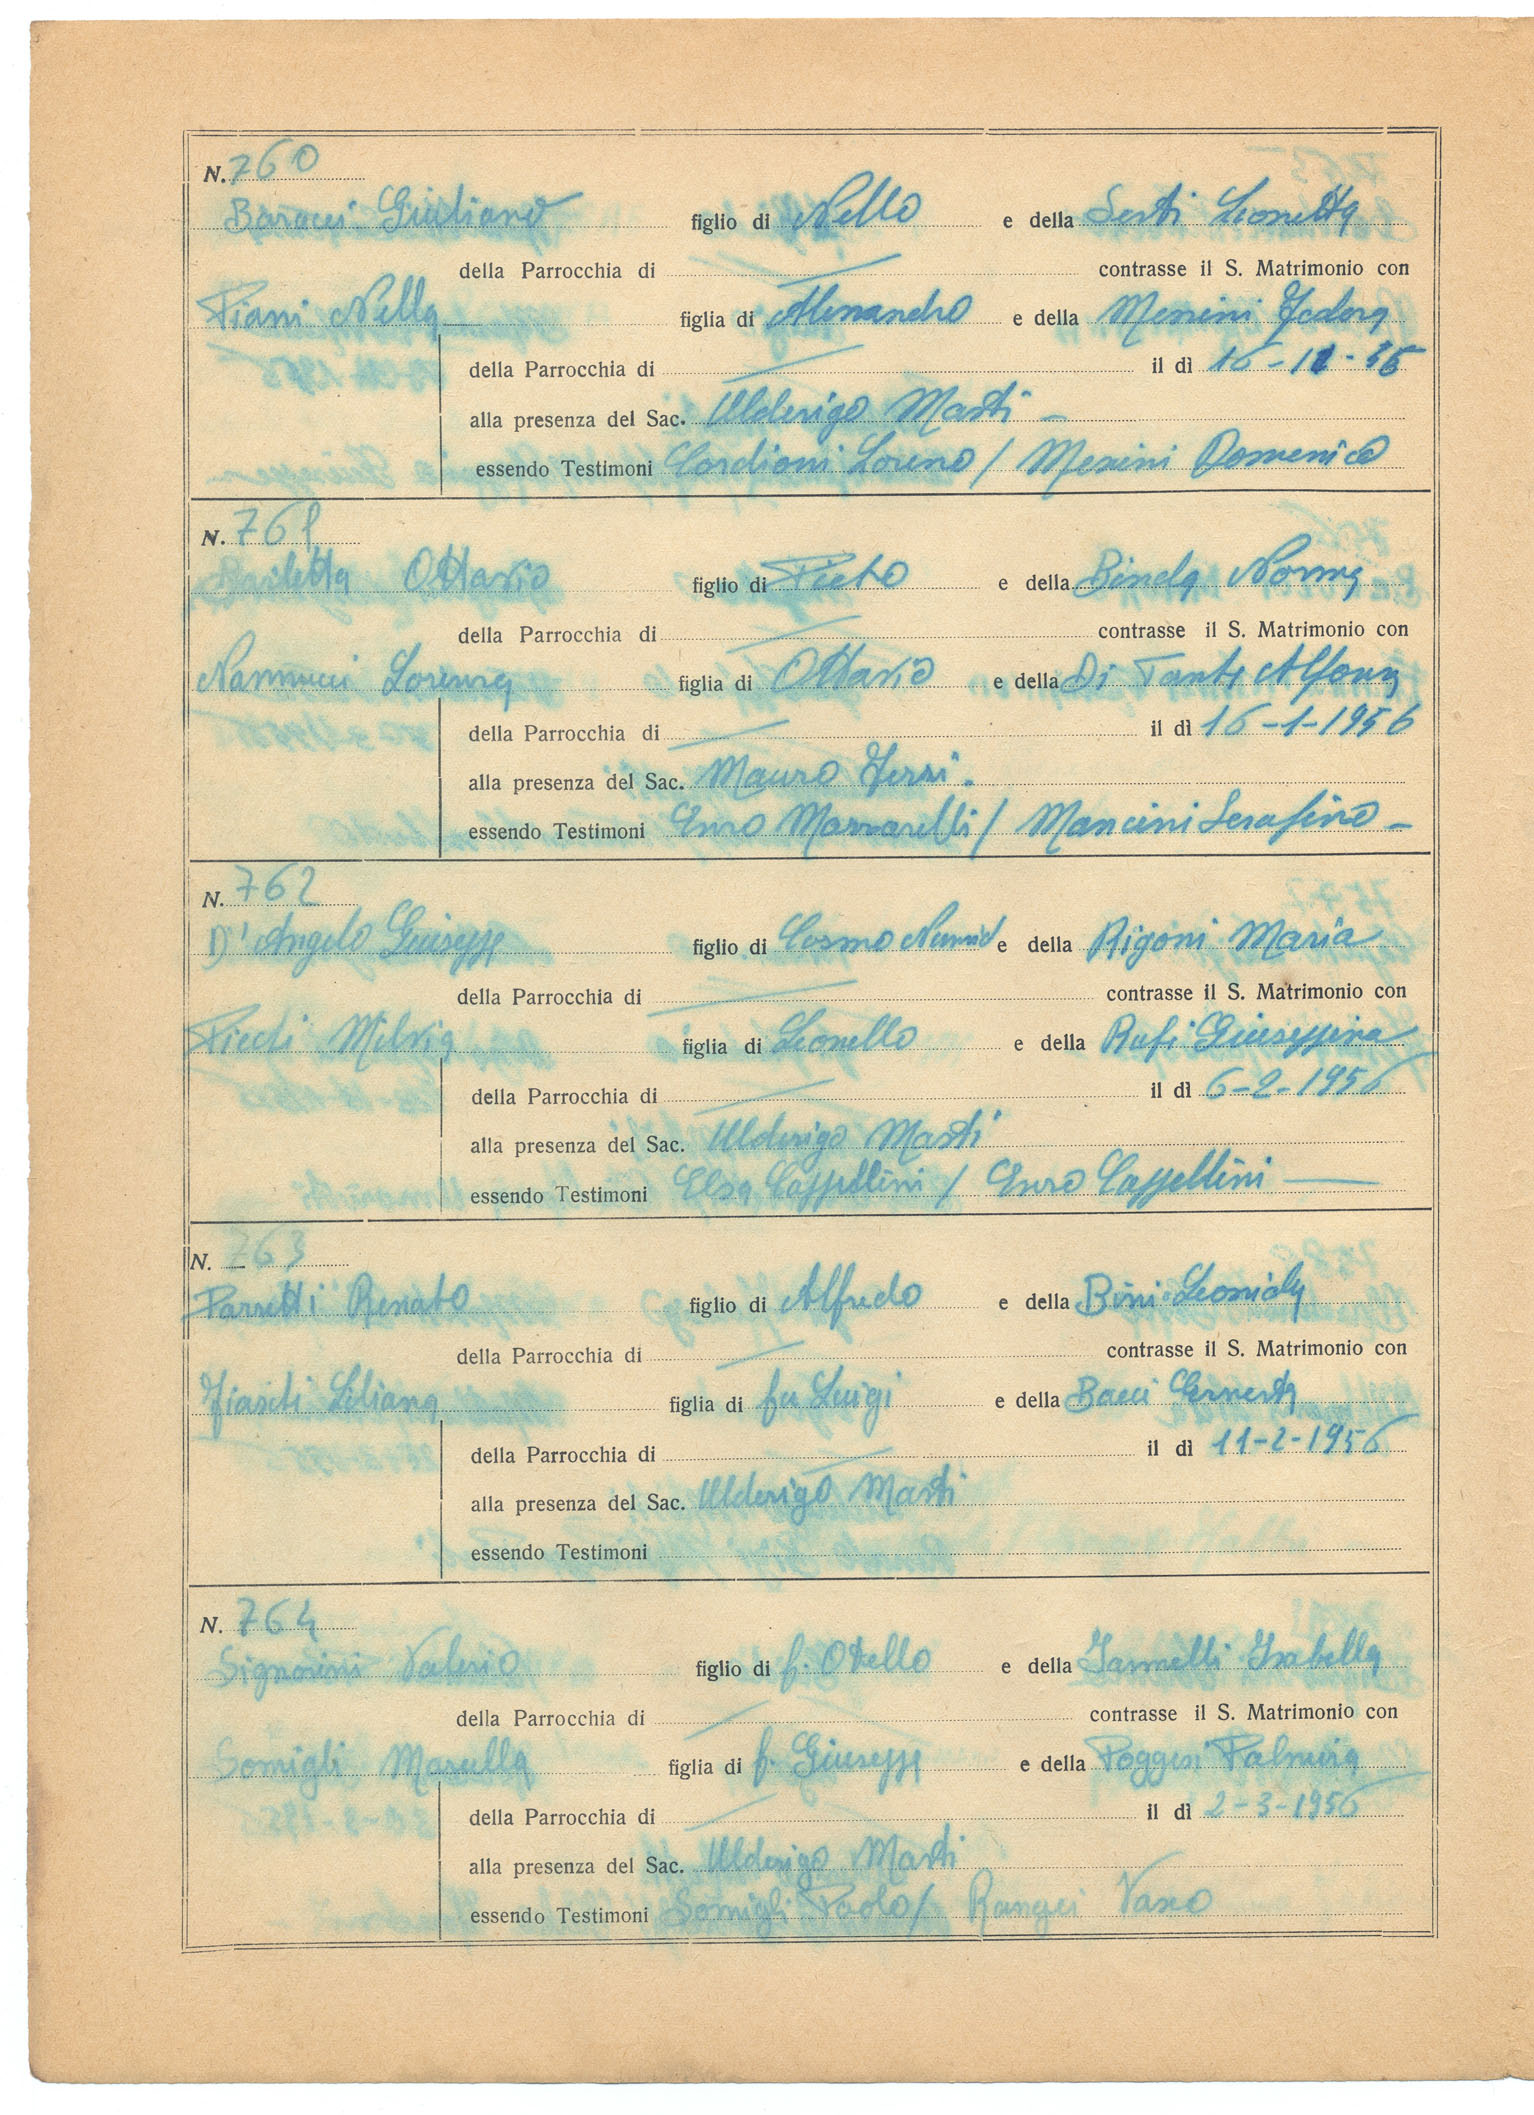 N. 760
Baracci Giuliano figlio di Nello e della Sesti Leonetta
della Parrocchia di contrasse il S. Matrimonio con
Piani Nella figlia di Alessandro e della Messini
della Parrocchia di il dì 16-11-
alla presenza del Sac. Ulderigo Masti
essendo Testimoni Cardioni Loreno / Messini Domenico
N. 761
Ottavio figlio di e della Binda Norma
della Parrocchia di contrasse il S. Matrimonio con
Nannucci Lorenza figlia di Ottavio e della Di
della Parrocchia di il dì 16-1-1956
alla presenza del Sac. Mauro
essendo Testimoni Enzo Mazzarelli / Mancini Serafino
N. 762
D'Angelo Giuseppe figlio di Cosmo e della Rigoni Maria
della Parrocchia di contrasse il S. Matrimonio con
Milvia figlia di Leonello e della Rafi Giuseppina
della Parrocchia di il dì 6-2-1956
alla presenza del Sac. Ulderigo Masti
essendo Testimoni Elsa Cappellini / Enzo Cappellini
N. 763
Parretti Renato figlio di Alfredo e della Bini Leonida
della Parrocchia di contrasse il S. Matrimonio con
Liliana figlia di fu Luigi e della Bacci Ernesta
della Parrocchia di il dì 11-2-1956
alla presenza del Sac. Ulderigo Masti
essendo Testimoni
N. 764
Signorini Valerio figlio di f. Otello e della Iannelli Isabella
della Parrocchia di contrasse il S. Matrimonio con
Somigli Marcella figlia di f. Giuseppe e della Poggesi Palmira
della Parrocchia di il dì 2-3-1956
alla presenza del Sac. Ulderigo Masti
essendo Testimoni Somigli Paolo / Vasco